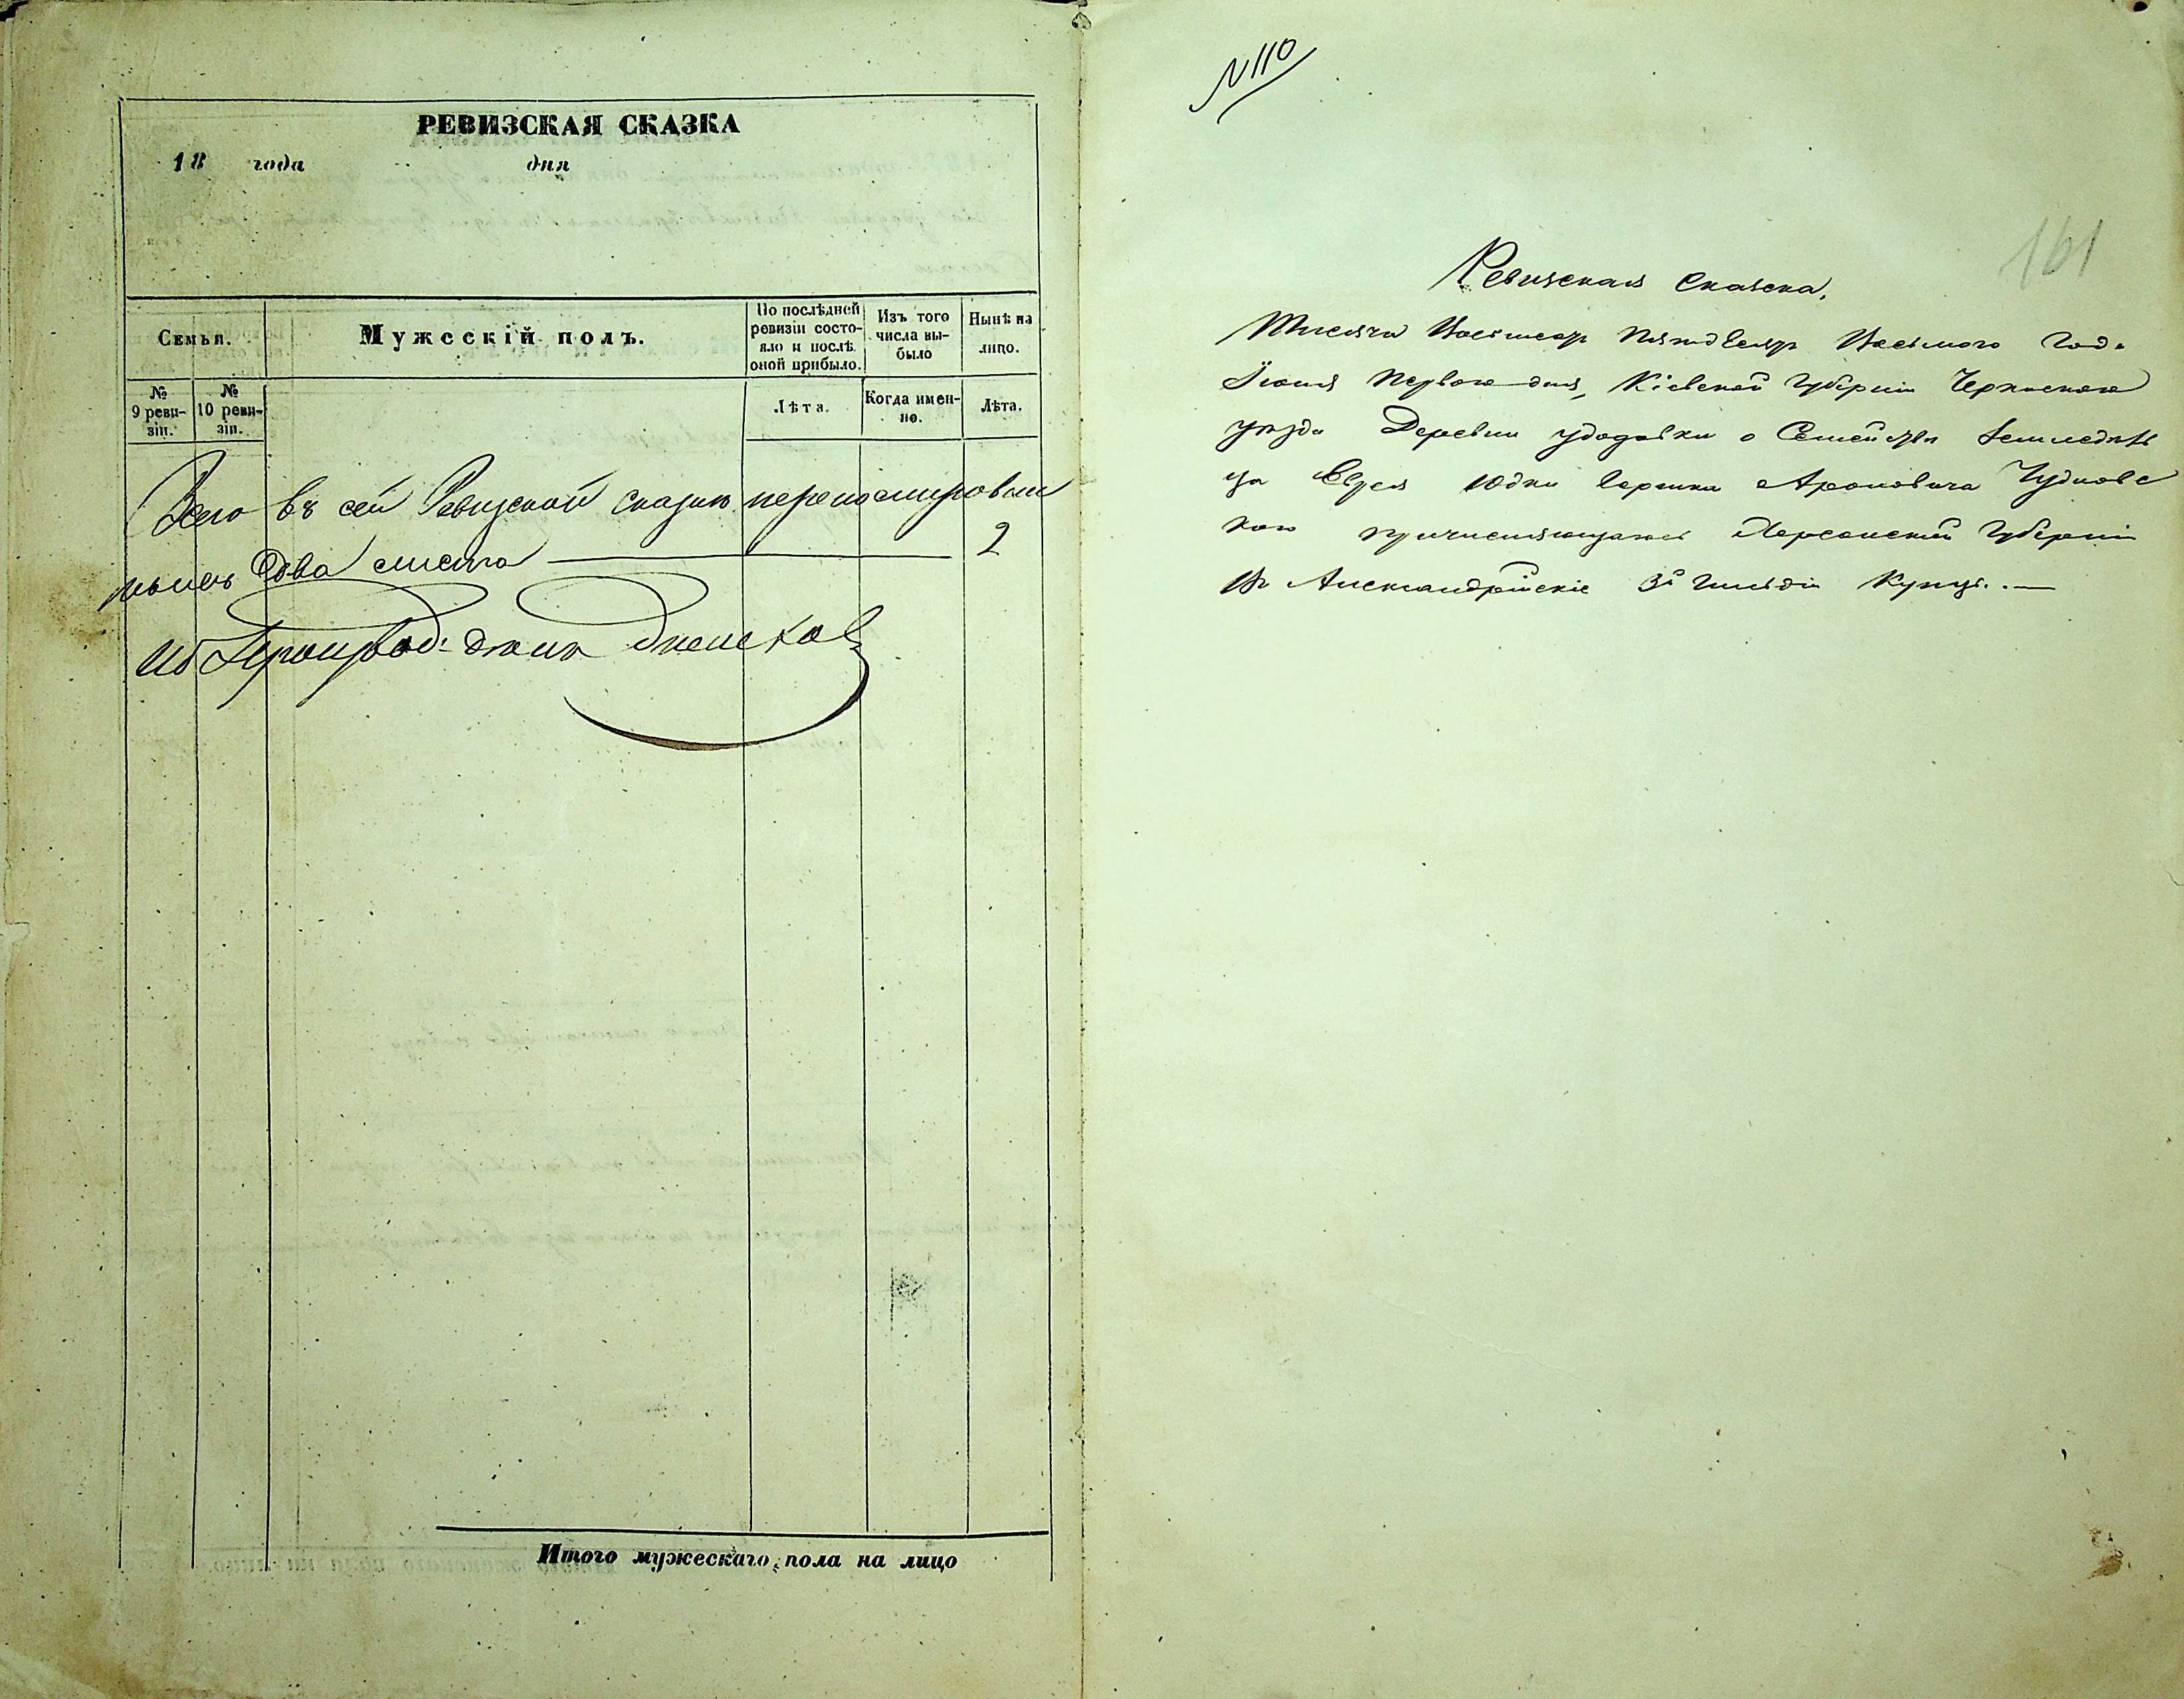 РЕВИЗСКАЯ СКАЗКА
18 года дня
Семья.
Мужескій полъ.
По послѣдней ревизіи состояло и послѣ оной прибыло.
Изъ того числа выбыло
Нынѣ на лицо.
№ 9 ревизіи.
№ 10 ревизіи.
Лѣта.
Когда именно.
Лѣта.
Всего въ сей Ревизской сказки перенумерован
два листа 2
Итого мужескаго пола на лицо
N 110
161
Ревизская Сказка,
Тысяча Восемсотъ Пятдесятъ Восьмого Года
Іюня Первого дня, Кіевской Губерніи Черкаского
уѣзда Деревни Удодовки о Семействѣ Земледѣль
ца Еврея Юдки Гершка Ароновича Чудновс
кого причисляющагося Херсонской Губерніи
въ Александрійскіе 3й Гильдіи Купцы. —